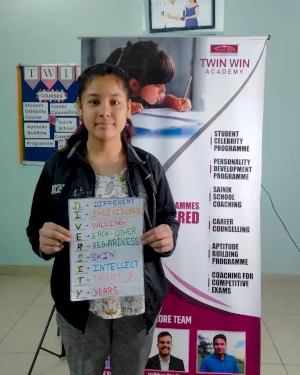 TWIN WIN
ACADEMY
TWI
COURSES
Student
Celebrity
Course
Career
Counselling
Sainik
School
Course
Aptitude
Building
Programme
STUDENT
CELEBRITY
PROGRAMME
PERSONALITY
DEVELOPMENT
PROGRAMME
SAINIK
SCHOOL
COACHING
CAREER
COUNSELLING
APTITUDE
BUILDING
PROGRAMME
COACHING FOR
COMPETITIVE
EXAMS
D - DIFFERENT
I - INDIVIDUALS
V - VALUING
E - EACH-OTHER
R - REGARDLESS
S - SKIN
I - INTELLECT
T - TALENT or
Y - YEARS
TEAM